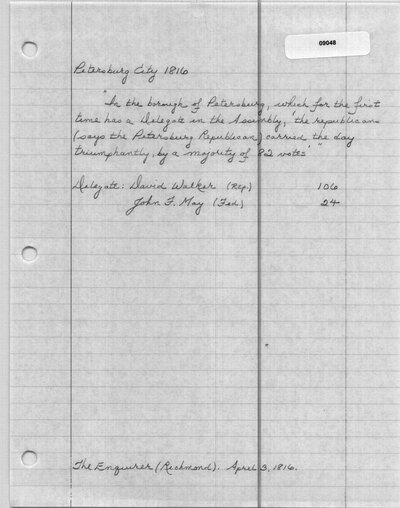 09048
Petersburg City 1816
"In the borough of Petersburg, which for the first
time has a Delegate in the Assembly, 'the republicans
(says the Petersburg Republican) carried the day
triumphantly, by a majority of 82 votes.'"
Delegate: David Walker (Rep.) 106
John F. May (Fed.) 24
The Enquirer (Richmond). April 3, 1816.